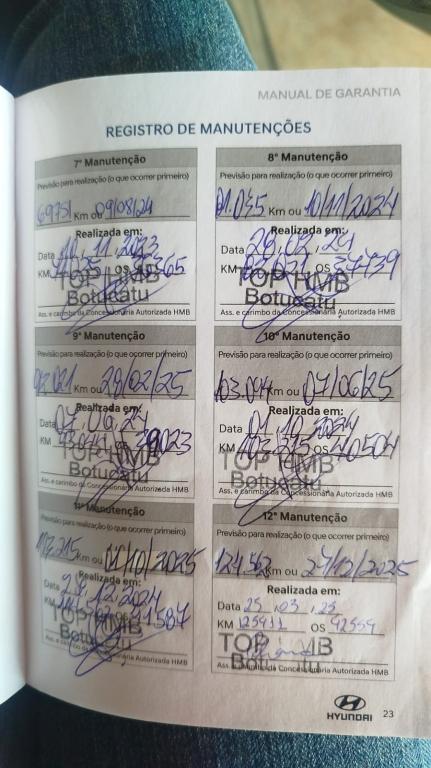 MANUAL DE GARANTIA
REGISTRO DE MANUTENÇÕES
7ª Manutenção
Previsão para realização (o que ocorrer primeiro)
69751 Km ou 09/08/24
Realizada em:
Data 10, 11, 2023
KM OS
TOP HMB
Botucatu
Ass. e carimbo da Concessionária Autorizada HMB
8ª Manutenção
Previsão para realização (o que ocorrer primeiro)
81.045 Km ou 10/11/2024
Realizada em:
Data 29, 02, 24
KM OS 34739
TOP HMB
Botucatu
Ass. e carimbo da Concessionária Autorizada HMB
9ª Manutenção
Previsão para realização (o que ocorrer primeiro)
92.021 Km ou 29/02/25
Realizada em:
07, 06, 24
KM
TOP HMB
Botucatu
Ass. e carimbo da Concessionária Autorizada HMB
10ª Manutenção
Previsão para realização (o que ocorrer primeiro)
103.044 Km ou 07/06/25
Realizada em:
Data 01, 10, 2024
KM 103.375 OS 40504
TOP HMB
Botucatu
Ass. e carimbo da Concessionária Autorizada HMB
11ª Manutenção
Previsão para realização (o que ocorrer primeiro)
Km ou 01/10/2025
Realizada em:
12, 2024
KM
TOP HMB
Botucatu
Ass. e carimbo da Concessionária Autorizada HMB
12ª Manutenção
Previsão para realização (o que ocorrer primeiro)
124.562 Km ou 27/12/2025
Realizada em:
Data 25, 03, 25
KM 125911 OS 42559
TOP HMB
Botucatu
Ass. e carimbo da Concessionária Autorizada HMB
HYUNDAI 23